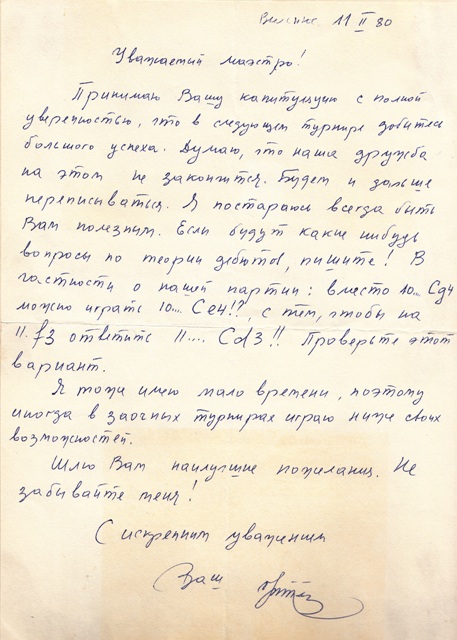 Вильнюс. 11 II 80
Уважаемый маэстро!
Принимаю Вашу капитуляцию с полной
уверенностью, что в следующем турнире добьетесь
большого успеха. Думаю, что наша дружба
на этом не закончится. Будем и дальше
переписываться. Я постараюсь всегда быть
Вам полезным. Если будут какие нибудь
вопросы по теории дебютов, пишите! В
частности о нашей партии: вместо 10... Cg4
можно играть 10.... Ce4!?, с тем, чтобы на
11. f3 ответить 11.... Cd3!! Проверьте этот
вариант.
Я тоже имею мало времени, поэтому
иногда в заочных турнирах играю ниже своих
возможностей.
Шлю Вам наилучшие пожелания. Не
забывайте меня!
С искренним уважением
Ваш